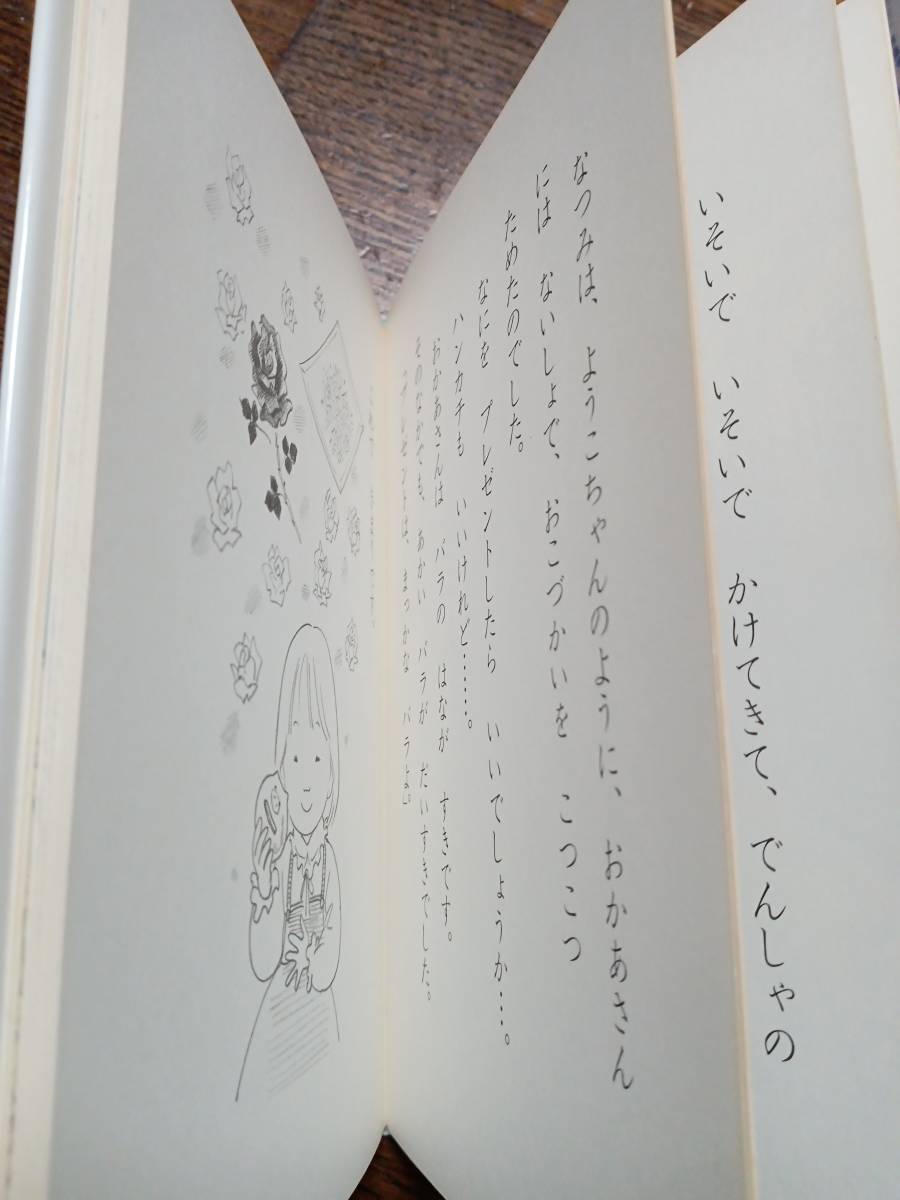 いそいで いそいで かけてきて、でんしゃの
なつみは、ようこちゃんのように、おかあさん
には ないしょで、おこづかいを こつこつ
ためたのでした。
なにを プレゼントしたら いいでしょうか…。
ハンカチも いいけれど……。
おかあさんは バラの はなが すきです。
そのなかでも、あかい バラが だいすきでした。
プレゼントは、まっかな バラよ。